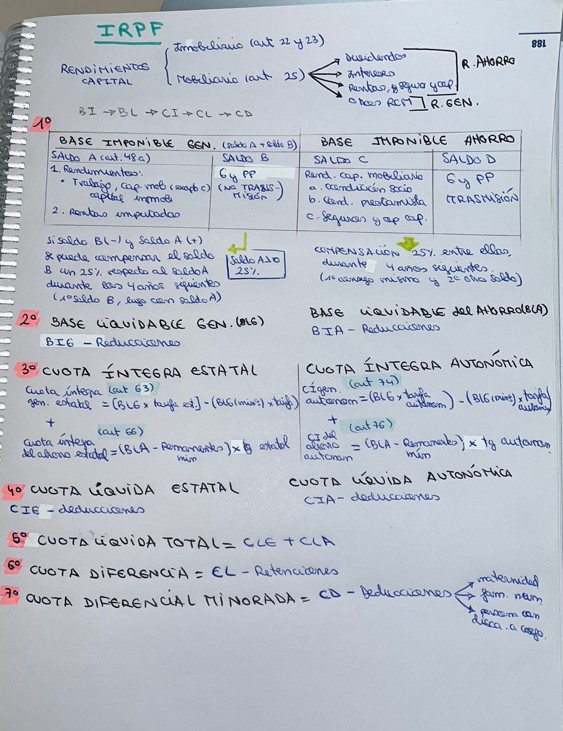 IRPF
188
RENDIMIENTOS CAPITAL
Inmobiliario (art 22 y 23)
Mobiliario (art 25)
Dividendos
Intereses
Rentas, y seguro y cap.
Otros RCM
R. AHORRO
R. GEN.
BI → BL → CI → CL → CD
1º
BASE IMPONIBLE GEN. (Saldo A + Saldo B)
SALDO A (art. 48 a)
1. Rendimientos:
• Trabajo, cap. mob (except c)
capital inmob
2. Rentas imputadas
SALDO B
G y PP
(NO TRANSMISIÓN)
BASE IMPONIBLE AHORRO
SALDO C
Rend. cap. mobiliario
a. condición socio
b. cond. prestamista
c. Seguros y op cap.
SALDO D
G y PP
(TRASMISIÓN
Si saldo B (-) y saldo A (+)
se puede compensar el saldo
B un 25% respecto al saldo A
durante los 4 años siguientes
(1º saldo B, luego con saldo A)
Saldo A>0
25%
COMPENSACIÓN 25% entre ellas,
durante 4 años siguientes.
(1º consigo mismo y 2º otro saldo)
2º BASE LIQUIDABLE GEN. (BLG)
BIG - Reducciones
BASE LIQUIDABLE del AHORRO (BLA)
BIA - Reducciones
3º CUOTA ÍNTEGRA ESTATAL
(art 63)
Cuota íntegra
gen. estatal = [BLG x tarifa est] - (BLG (mins) x tarif)
+
(art 66)
cuota íntegra
del ahorro estatal = (BLA - Remanentes min) x tg estatal
CUOTA ÍNTEGRA AUTONÓMICA
(art 74)
CI gen
autonom = (BLG x tarifa autonom) - (BLG (mins) x tarifa autonom)
+
(art 76)
CI del
ahorro
autonom = (BLA - Remanente min) x tg autonom
4º CUOTA LÍQUIDA ESTATAL
CIE - deducciones
CUOTA LÍQUIDA AUTONÓMICA
CIA - deducciones
5º CUOTA LÍQUIDA TOTAL = CLE + CLA
6º CUOTA DIFERENCIA = CL - Retenciones
7º CUOTA DIFERENCIAL MINORADA = CD - Deducciones
maternidad
fam. num
person con
disca. a cargo.